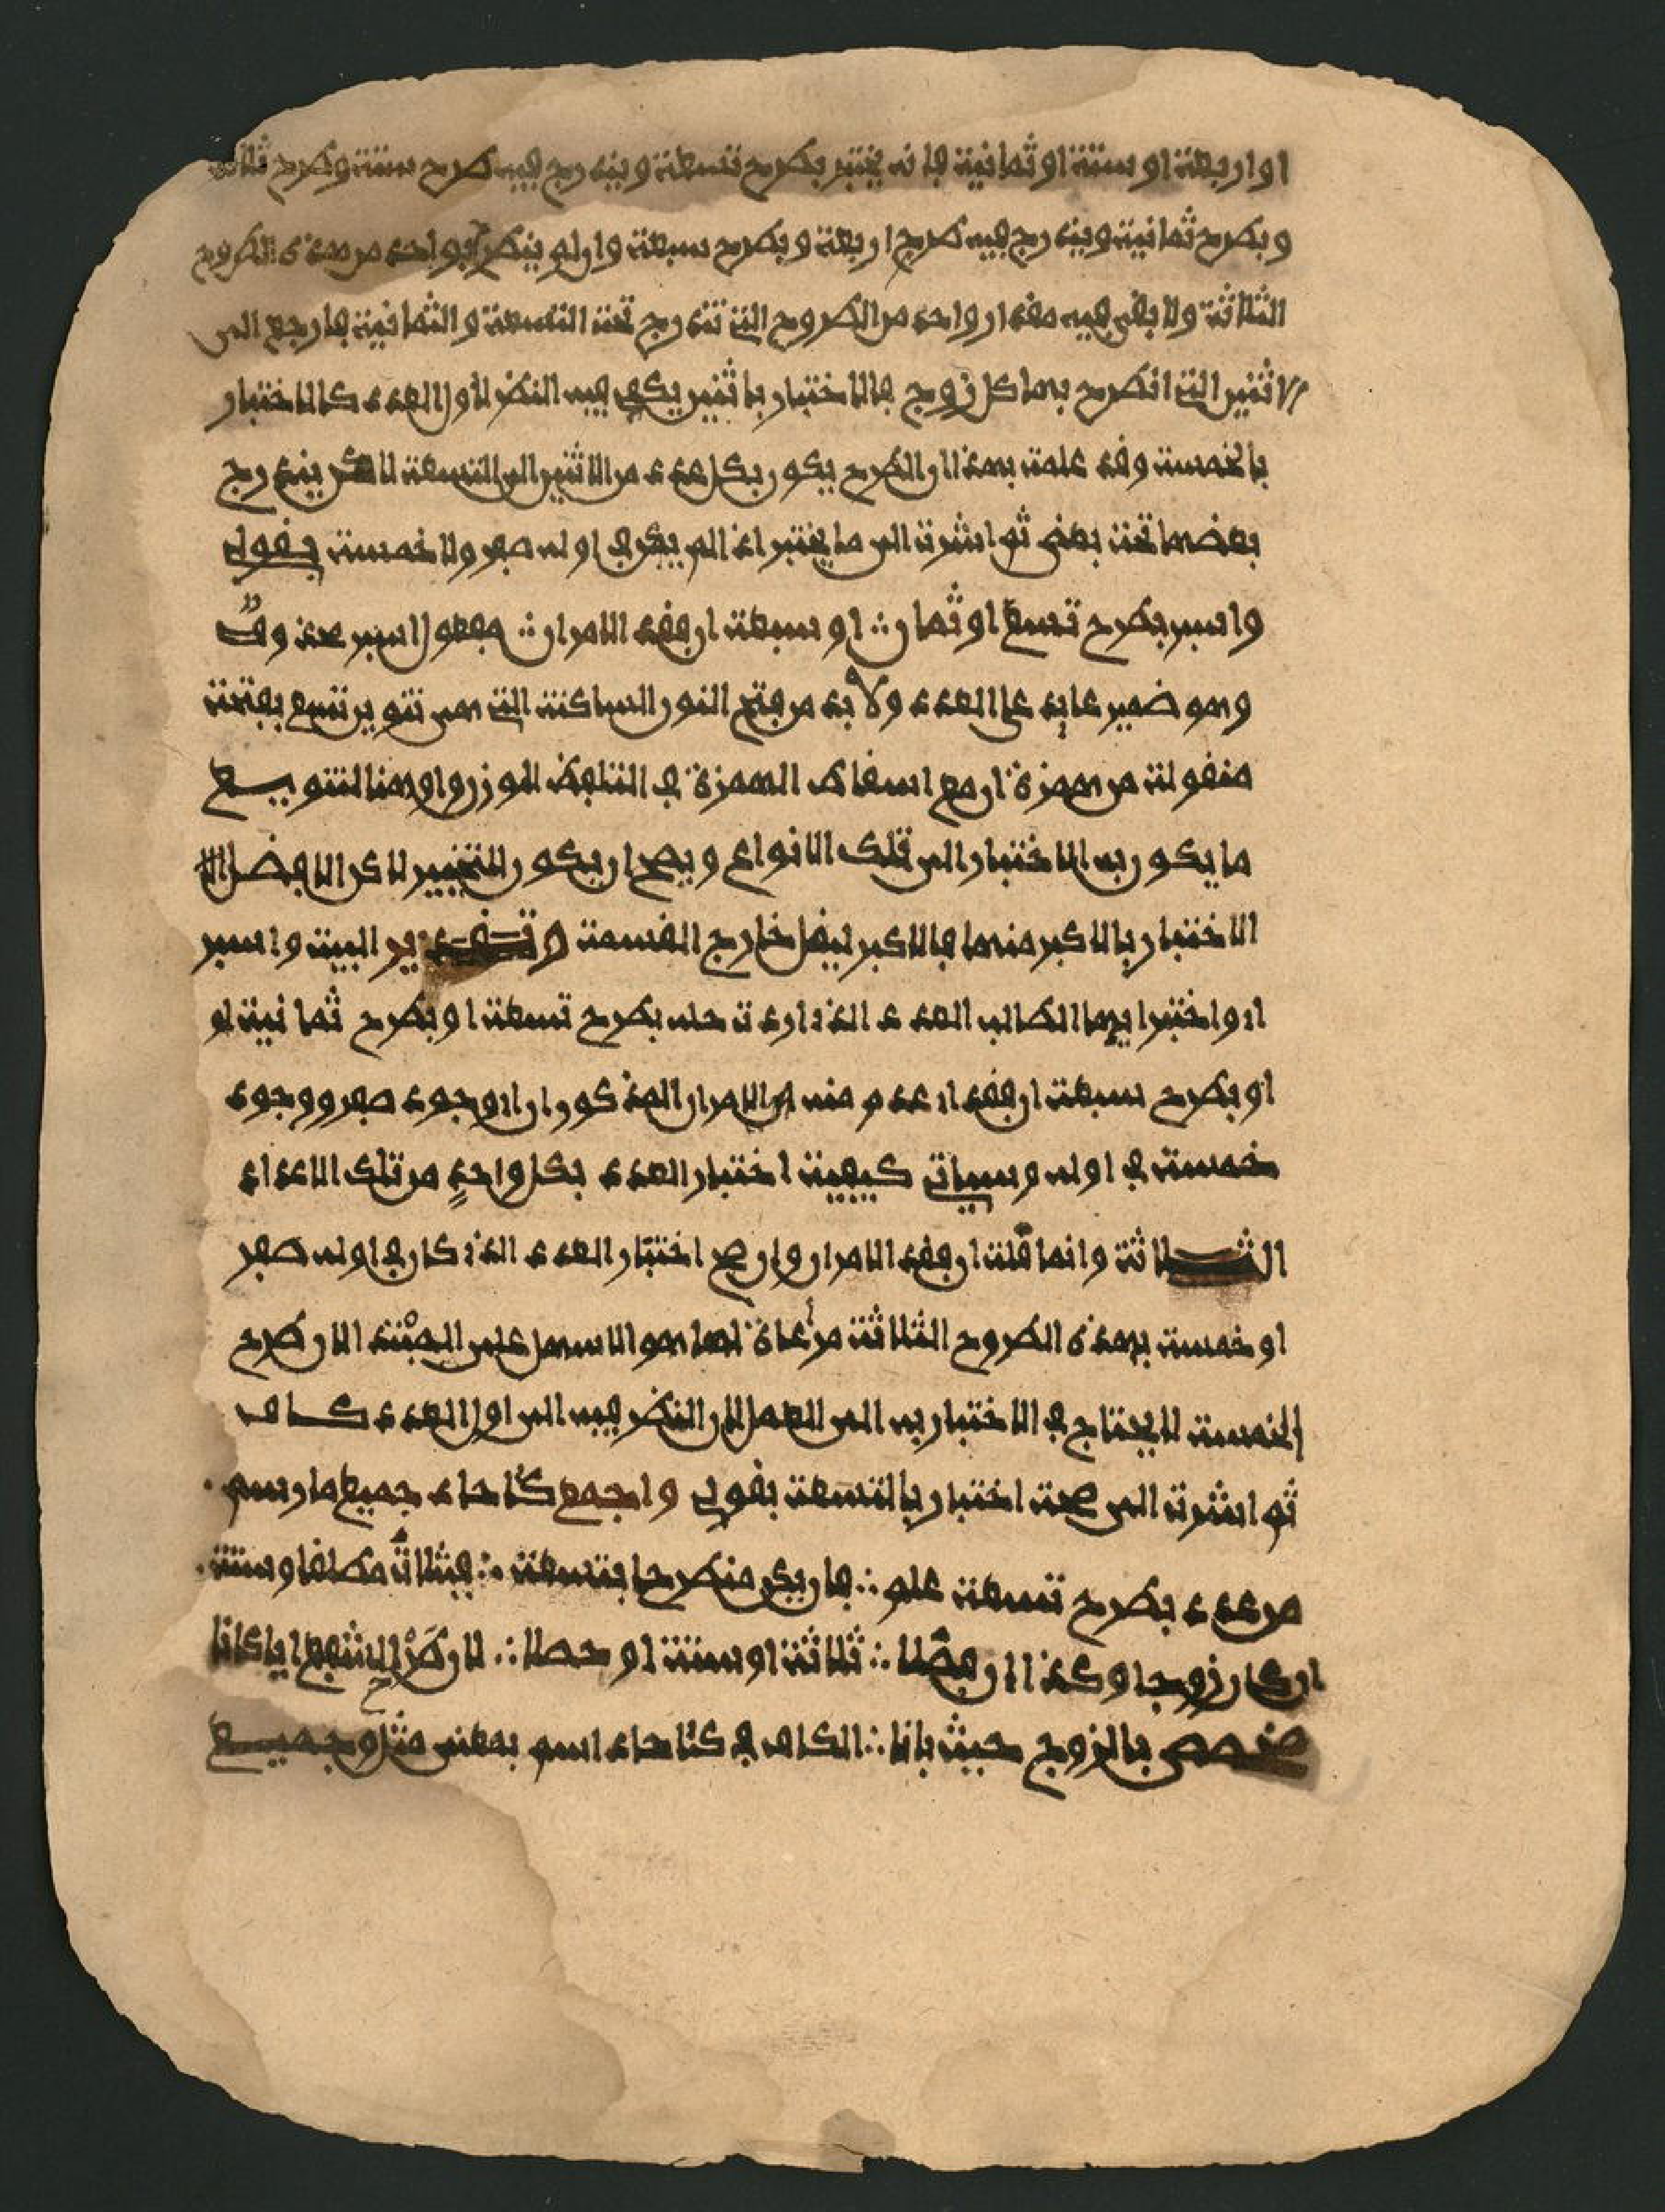 او اربعة او ستة او ثمانية فانه يختبر بطرح تسعة ويندرج فيه طرح ستة وطرح ثلاثة
وبطرح ثمانية ويندرج فيه طرح اربعة وبطرح سبعة وان لم ينطرح بواحد من هذه الطروح
الثلاثة ولا بقي فيه مقدار واحد من الطروح التي تندرج تحت التسعة والثمانية فارجع الى
الاثنين التي انطرح بها كل زوج فالاختبار باثنين يكفي فيه النظر لاول العدد كالاختبار
بالخمسة وقد علمت بهذا ان الطرح يكون بكل عدد من الاثنين الى التسعة لاكن يندرج
بعضها تحت بعض ثم اشرت الى ما يختبر اذا لم يكن في اوله صفر ولا خمسة بقولي
واسبر بطرح تسع او ثمان ∴ او سبعة ان فقد الامران ∴ مفعول اسبر محذوف
وهو ضمير عايد على العدد ولا بد من فتح النون الساكنة التي هي تنوين تسع بفتحة
منقولة من همزة او مع اسقاط الهمزة في التلفظ للوزن واو هنا لتنويع
ما يكون به الاختبار الى تلك الانواع ويصح ان يكون للتخيير لاكن الافضل
الاختبار بالاكبر منها فالاكبر ليقل خارج القسمة وتقدير البيت واسبر
اي واختبر ايها الطالب العدد الذي اردت حله بطرح تسعة او بطرح ثمانية او
او بطرح سبعة ان فقد اي عدم منه الامران المذكوران اي وجود صفر ووجود
خمسة في اوله وسياتي كيفية اختبار العدد بكل واحد من تلك الاعداد
الثلاثة وانما قلت ان فقد الامران وان صح اختبار العدد الذي كان في اوله صفر
او خمسة بهذه الطروح الثلاثة مراعاة لما هو الاسهل على المبتدي لان طرح
الخمسة لا يحتاج في الاختبار به الى العمل لان النظر فيه الى اول العدد كاف
ثم اشرت الى صحة اختبار بالتسعة بقولي واجمع كئاحاد جميع ما رسم
من عدد بطرح تسعة علم ∴ فان يكن منطرحا بتسعة ∴ فبثلاث مطلقا وستة
ان كان زوجا وكذا ان فضلا ∴ ثلاثة او ستة او حصلا ∴ لاكن الشفع اياكانا
خصص بالزوج حيث بانا ∴ الكاف في كئاحاد اسم بمعنى مثل وجميع